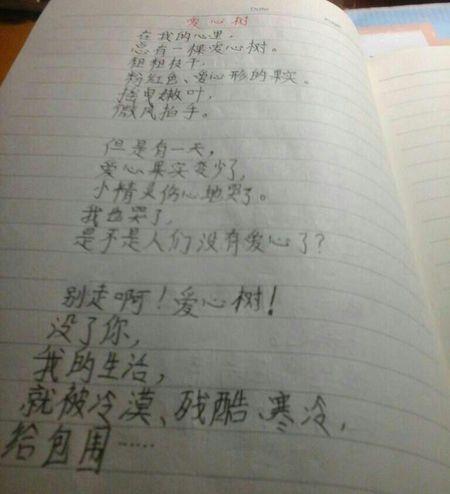 Date
爱心树
在我的心里，
总有一棵爱心树。
粗粗枝干，
粉红色、爱心形的果实。
嫩叶，
微风拍手。
但是有一天，
爱心果实变少了，
小精灵伤心地哭了。
我也哭了，
是不是人们没有爱心了？
别走啊！爱心树！
没了你，
我的生活，
就被冷漠、残酷、寒冷，
给包围……